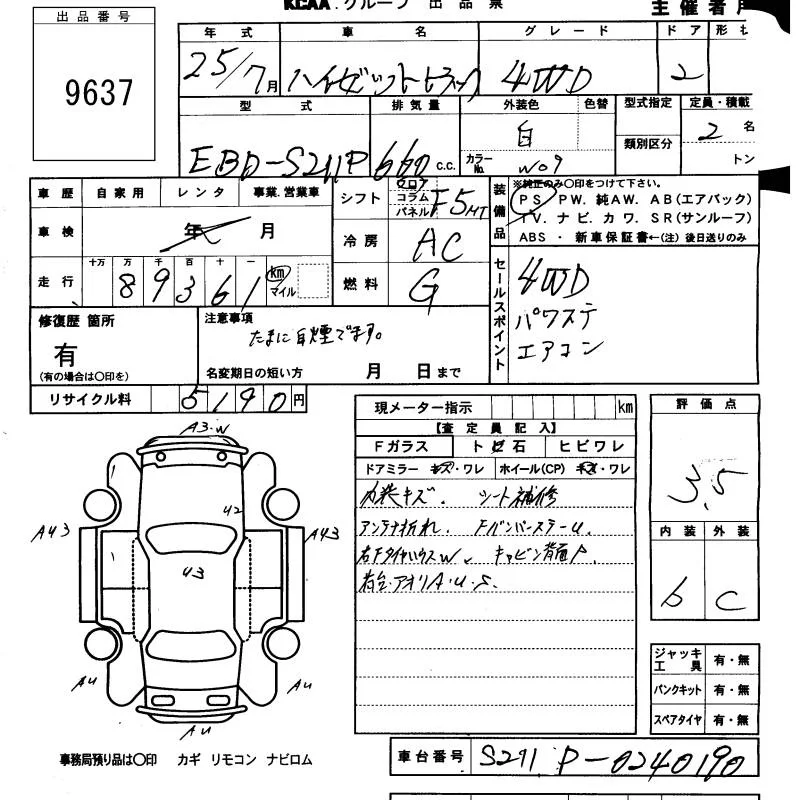 KCAA.グループ 出品票
主催者用
出品番号
9637
年式 車名 グレード ドア 形も
25/7月 ハイゼットトラック 4WD 2
型式 排気量 外装色 色替 型式指定 定員・積載
EBD-S211P 660 c.c. 白 カラーNo. W09 類別区分 2 名
トン
車歴 自家用 レンタ 事業.営業車
シフト フロア コラム パネル F5MT
装備品
※純正のみ〇印をつけて下さい。
PS PW. 純AW. AB(エアバック)
TV. ナビ. カワ. SR(サンルーフ)
ABS ・ 新車保証書←(注) 後日送りのみ
車検 年 月
冷房 AC
走行 十万 万 千 百 十 一
89361 km マイル
燃料 G
セールスポイント
4WD
パワステ
エアコン
修復歴 箇所
有
(有の場合は〇印を)
注意事項
たまに白煙でます。
名変期日の短い方 月 日まで
リサイクル料 5190円
現メーター指示 km
【査定員記入】
Fガラス ト石 ヒビワレ
ドアミラー キズ・ワレ ホイール(CP) キズ・ワレ
内装キズ. シート補修
アンテナ折れ.
右FタイヤハウスW. キャビン背面P.
評価点
3.5
内装 外装
b C
A3.W
42
43
A43
A43
1
1
AU
AU
AU
ジャッキ工具 有・無
パンクキット 有・無
スペアタイヤ 有・無
事務局預り品は〇印 カギ リモコン ナビロム
車台番号 S211P-0240190